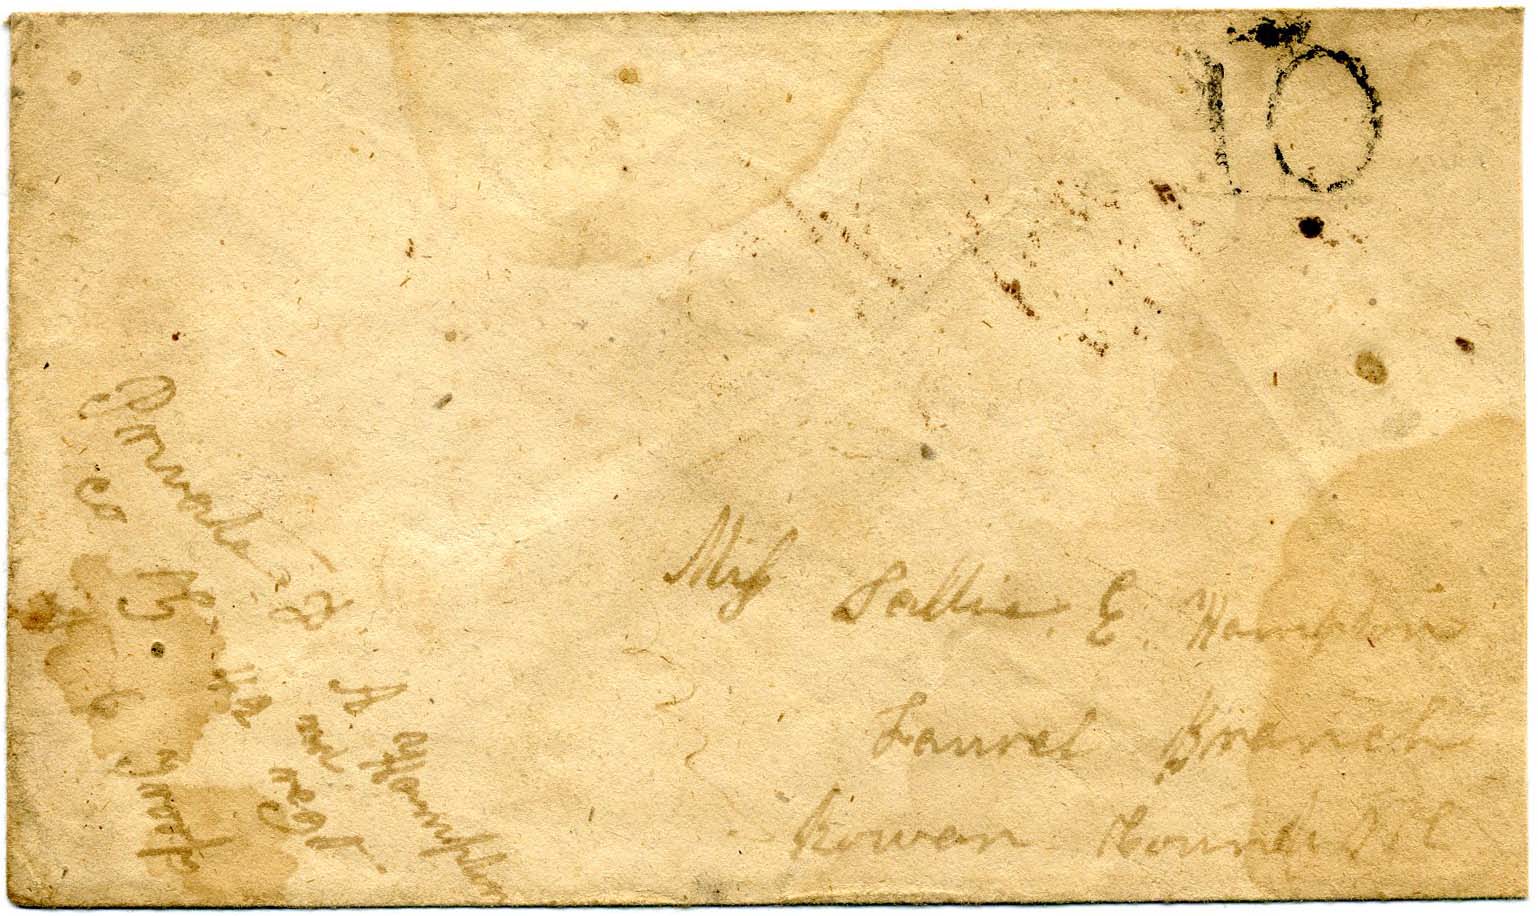 10
Private D. A Hampton
co B. 42 nc regt
c troop
Miss Sallie. E. Hampton
Laurel Branch
Rowan County N C